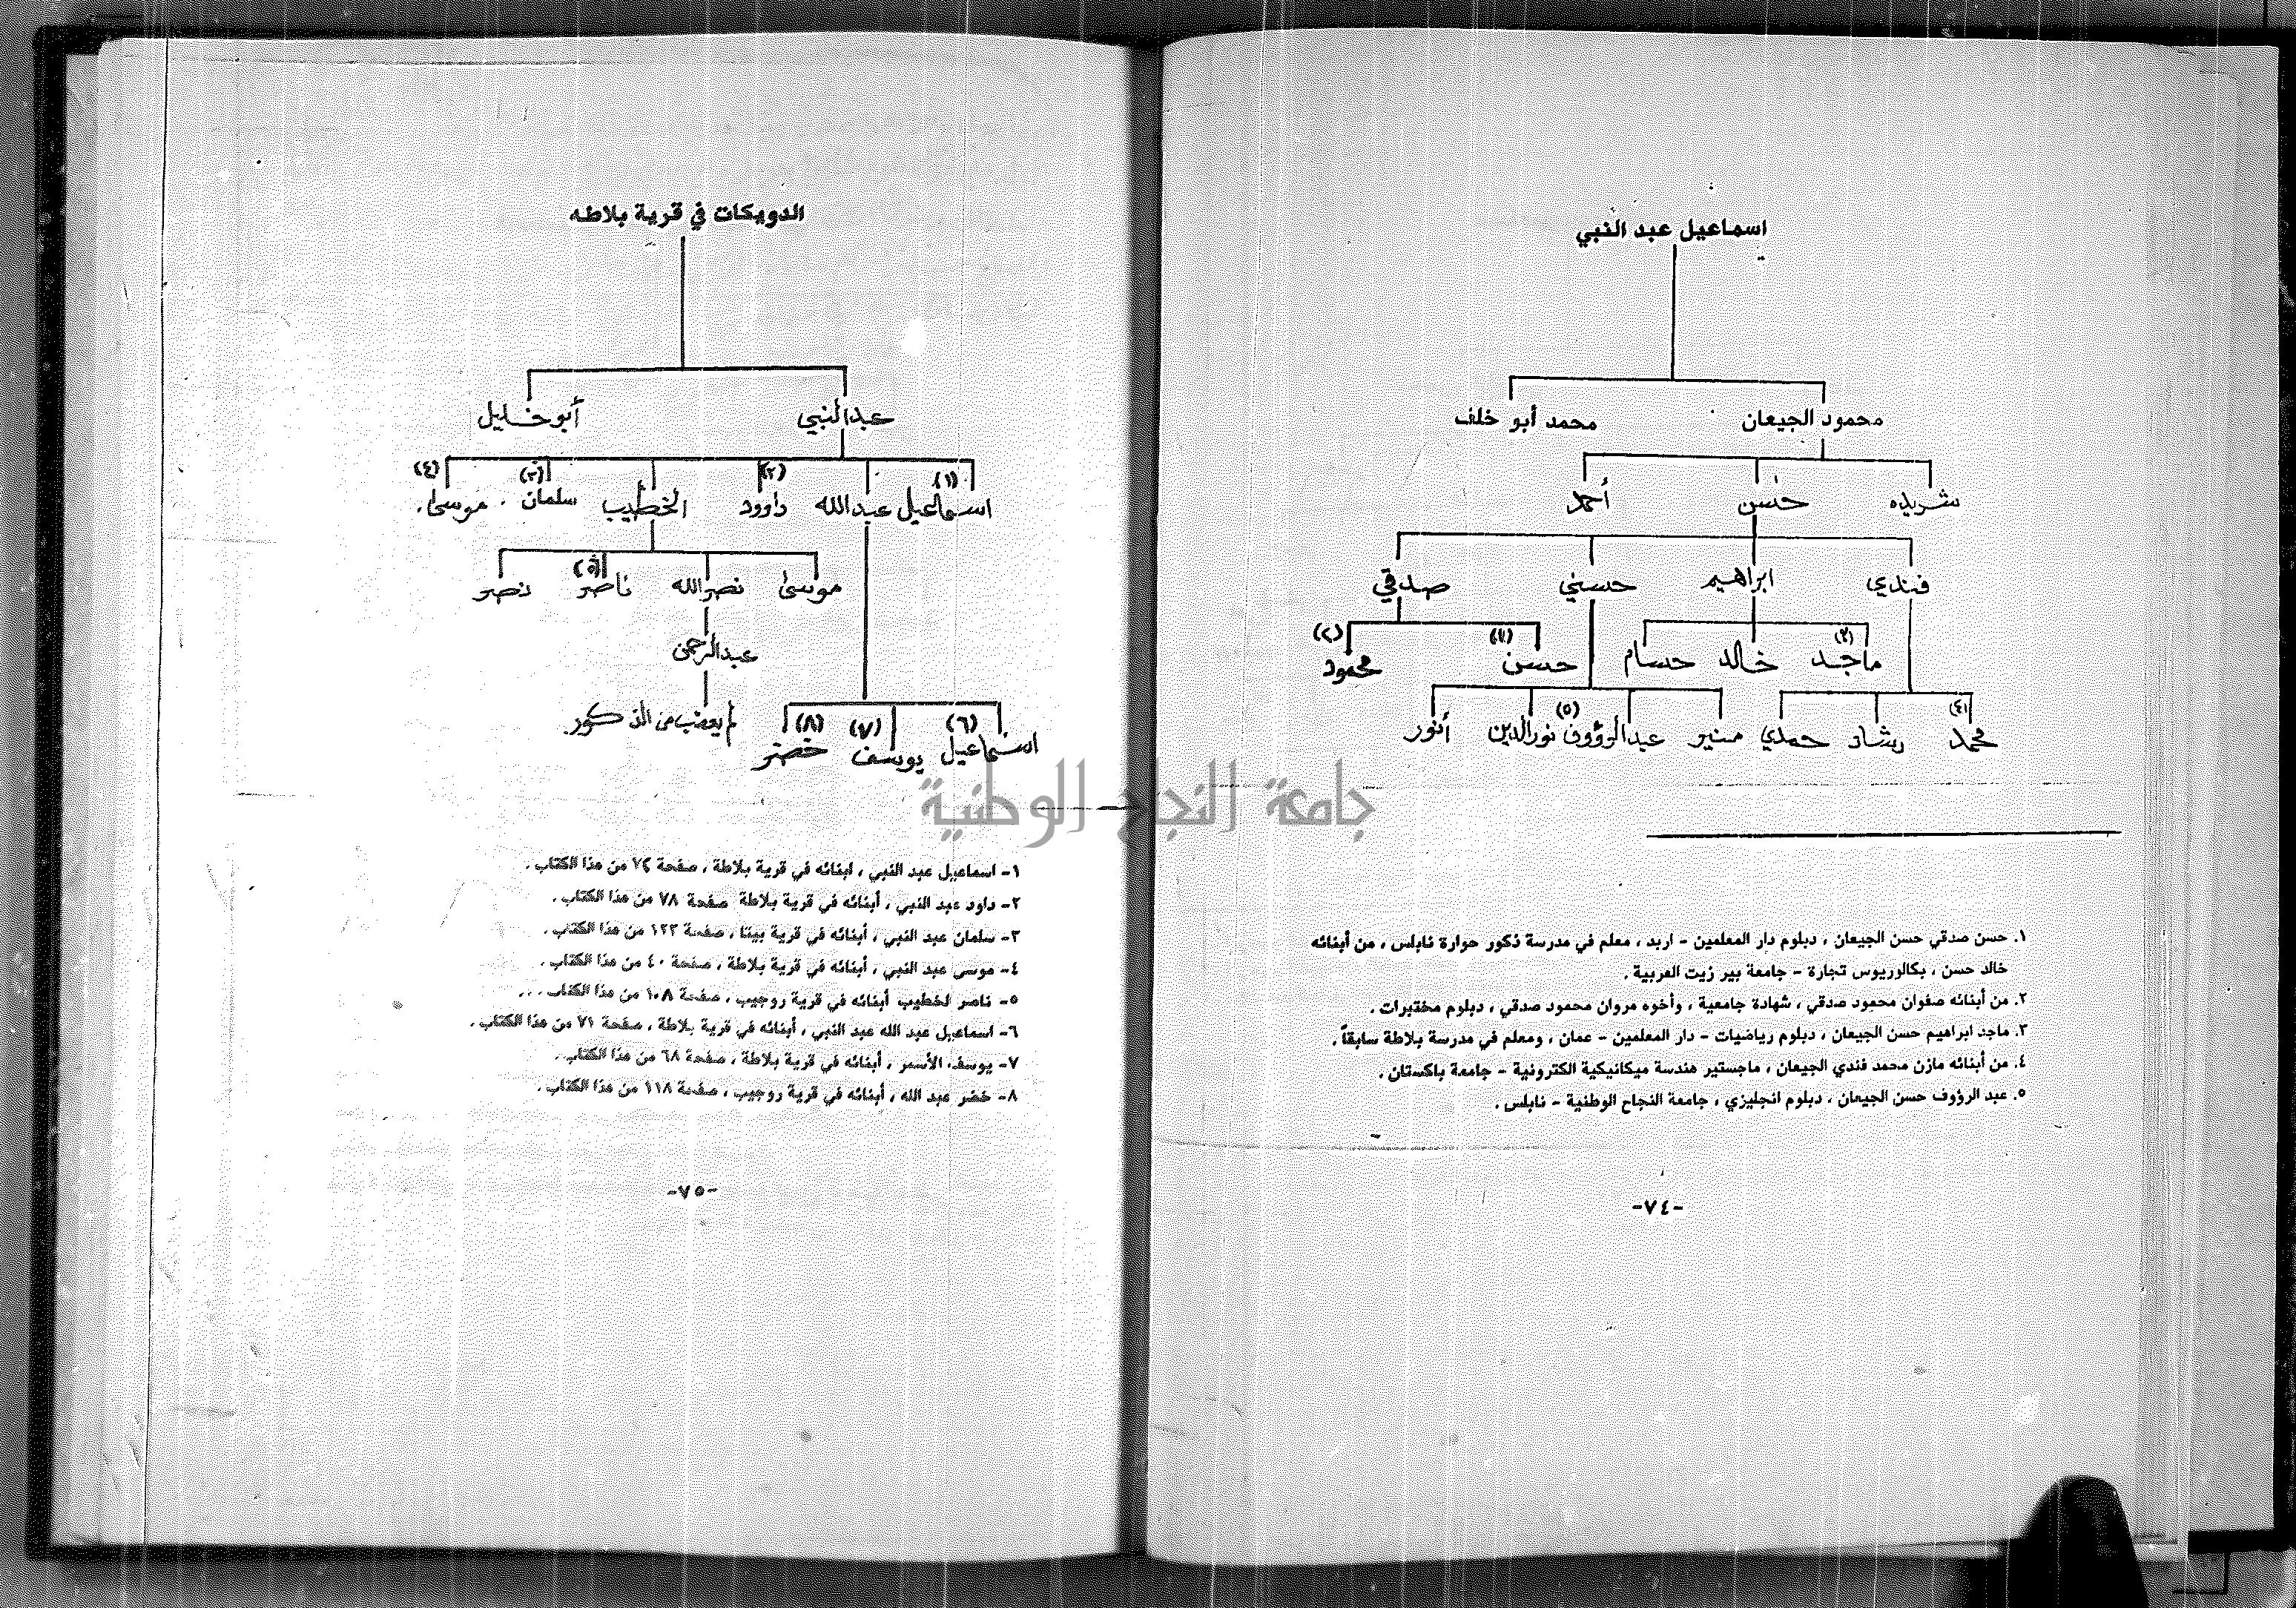 اسماعيل عبد النبي
محمود الجيعان محمد أبو خلف
شريده حسن أحمد
فندي ابراهيم حسني صدقي
(٣) (١) (٢)
ماجد خالد حسام حسن محمود
(٤) (٥)
محمد رشاد حمدي منير عبدالرؤوف نورالدين أنور
١. حسن صدقي حسن الجيعان ، دبلوم دار المعلمين - اربد ، معلم في مدرسة ذكور حوارة نابلس ، من أبنائه
خالد حسن ، بكالوريوس تجارة - جامعة بير زيت العربية .
٢. من أبنائه صفوان محمود صدقي ، شهادة جامعية ، وأخوه مروان محمود صدقي ، دبلوم مختبرات .
٣. ماجد ابراهيم حسن الجيعان ، دبلوم رياضيات - دار المعلمين - عمان ، ومعلم في مدرسة بلاطة سابقاً .
٤. من أبنائه مازن محمد فندي الجيعان ، ماجستير هندسة ميكانيكية الكترونية - جامعة باكستان .
٥. عبد الرؤوف حسن الجيعان ، دبلوم انجليزي ، جامعة النجاح الوطنية - نابلس .
-٧٤-
الدويكات في قرية بلاطه
عبدالنبي أبو خليل
(١) (٢) (٣) (٤)
اسماعيل عبدالله داوود الخطيب سلمان . موسى .
(٥)
موسى نصرالله ناصر نصر
عبدالرحمن
لم يعقب من الذكور .
(٦) (٧) (٨)
اسماعيل يوسف خضر
١- اسماعيل عبد النبي ، ابنائه في قرية بلاطة ، صفحة ٧٤ من هذا الكتاب .
٢- داود عبد النبي ، أبنائه في قرية بلاطة صفحة ٧٨ من هذا الكتاب .
٣- سلمان عبد النبي ، أبنائه في قرية بيتا ، صفحة ١٢٣ من هذا الكتاب .
٤- موسى عبد النبي ، أبنائه في قرية بلاطة ، صفحة ٤٠ من هذا الكتاب .
٥- ناصر الخطيب أبنائه في قرية روجيب ، صفحة ١٠٨ من هذا الكتاب . . .
٦- اسماعيل عبد الله عبد النبي ، أبنائه في قرية بلاطة ، صفحة ٧١ من هذا الكتاب .
٧- يوسف الأسمر ، أبنائه في قرية بلاطة ، صفحة ٦٨ من هذا الكتاب .
٨- خضر عبد الله ، أبنائه في قرية روجيب ، صفحة ١١٨ من هذا الكتاب .
-٧٥-
جامعة النجاح الوطنية